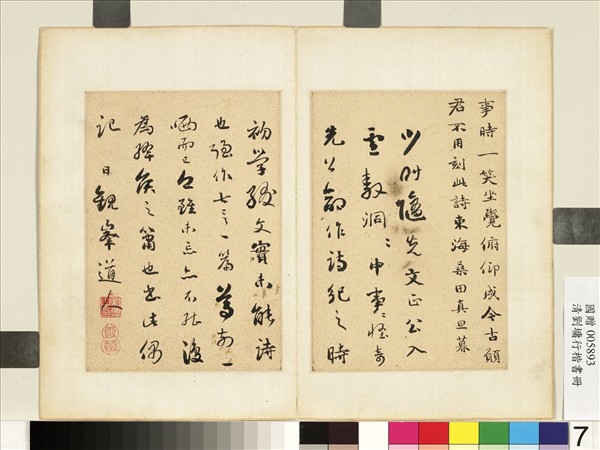 事時一笑坐覺俯仰成今古願
君不用刻此詩東海桑田真旦暮
少時隨先文正公入
數洞〻中事〻怪奇
先公命作詩紀之時
初學綴文實未能詩
也強作七言一篇
哂而已今雖未忘亦不能復
為之也書此偶
記 日觀峯道人
國贈 005893
清劉墉行楷書冊
7